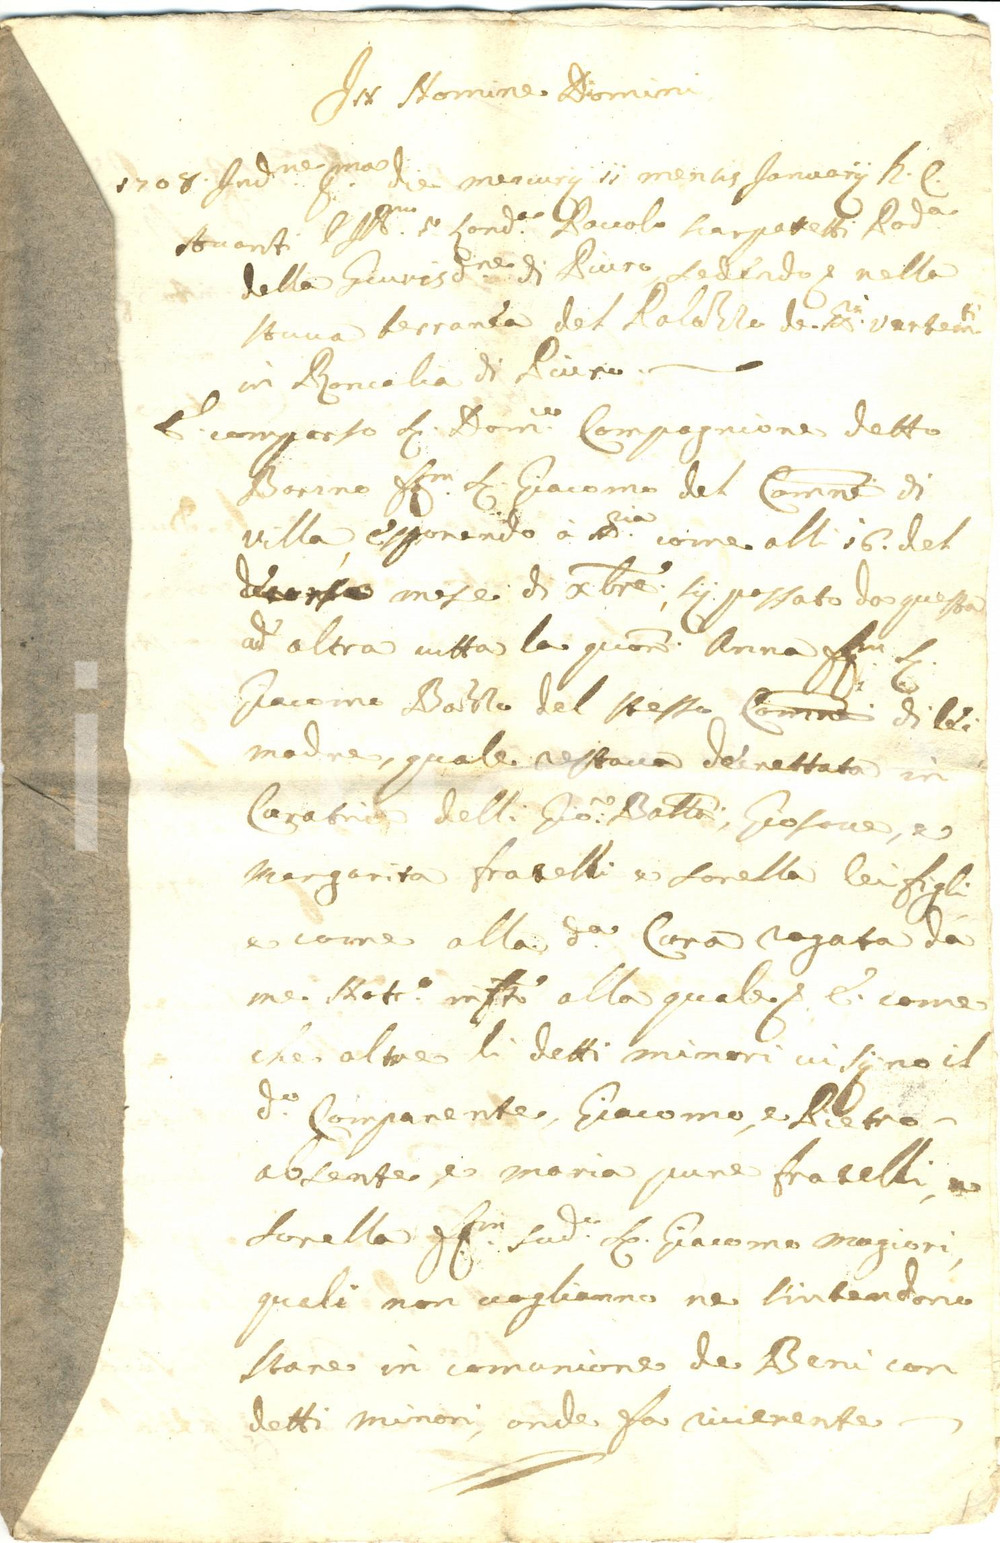 In Nomine Domini
1708. Ind.ne p.ma die mercurij 11 mensis January h. C.
Avanti l' Ill.mo s.r Land.o Pavolo Scarpatetti Pod.à
della Giurisd.ne di Piuro sedendo nella
stuva terranea del Palazzo de SS.ri vertem.ti
in Roncalia di Piuro.
È comparso S. Dom.co Compagnione detto
Borzno S. Giacomo del Comne di
villa, esponendo à S.ria come alli 16. del
mese di xbre, sij passato da questa
ad altra vitta la quon. Anna S.
Giacomo del stesso Comne di lei
madre, quale restava decrettata in
Curatrice delli Gio. Batta, Giosove, e
Margarita fratelli e sorella lei figli
e come alla d.a Cura rogata da
me Not.o alla quale come
che altre li detti minori vi sijno il
d.o Comparente, Giacomo, e Pietro
absente, e maria pure fratelli, e
sorella sud.o S. Giacomo magiori,
quali non vogliamo ne s'intendono
stare in comunione de Beni con
detti minori, onde fa riverente